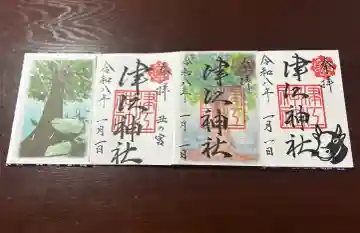 奉拝
津江神社
令和八年
一月一日
奉拝
津江神社
令和八年
一月一日
奉拝
丑の宮
津江神社
令和八年
一月一日